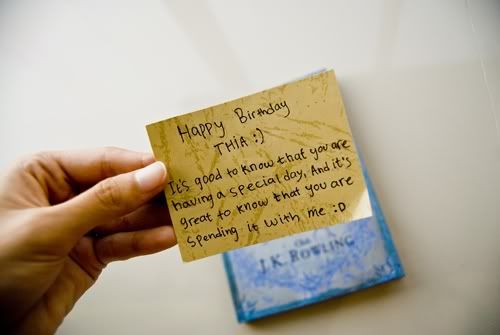 Happy Birthday
THIA :)
It's good to know that you are
having a special day, And it's
great to know that you are
spending it with me :D
J.K. ROWLING